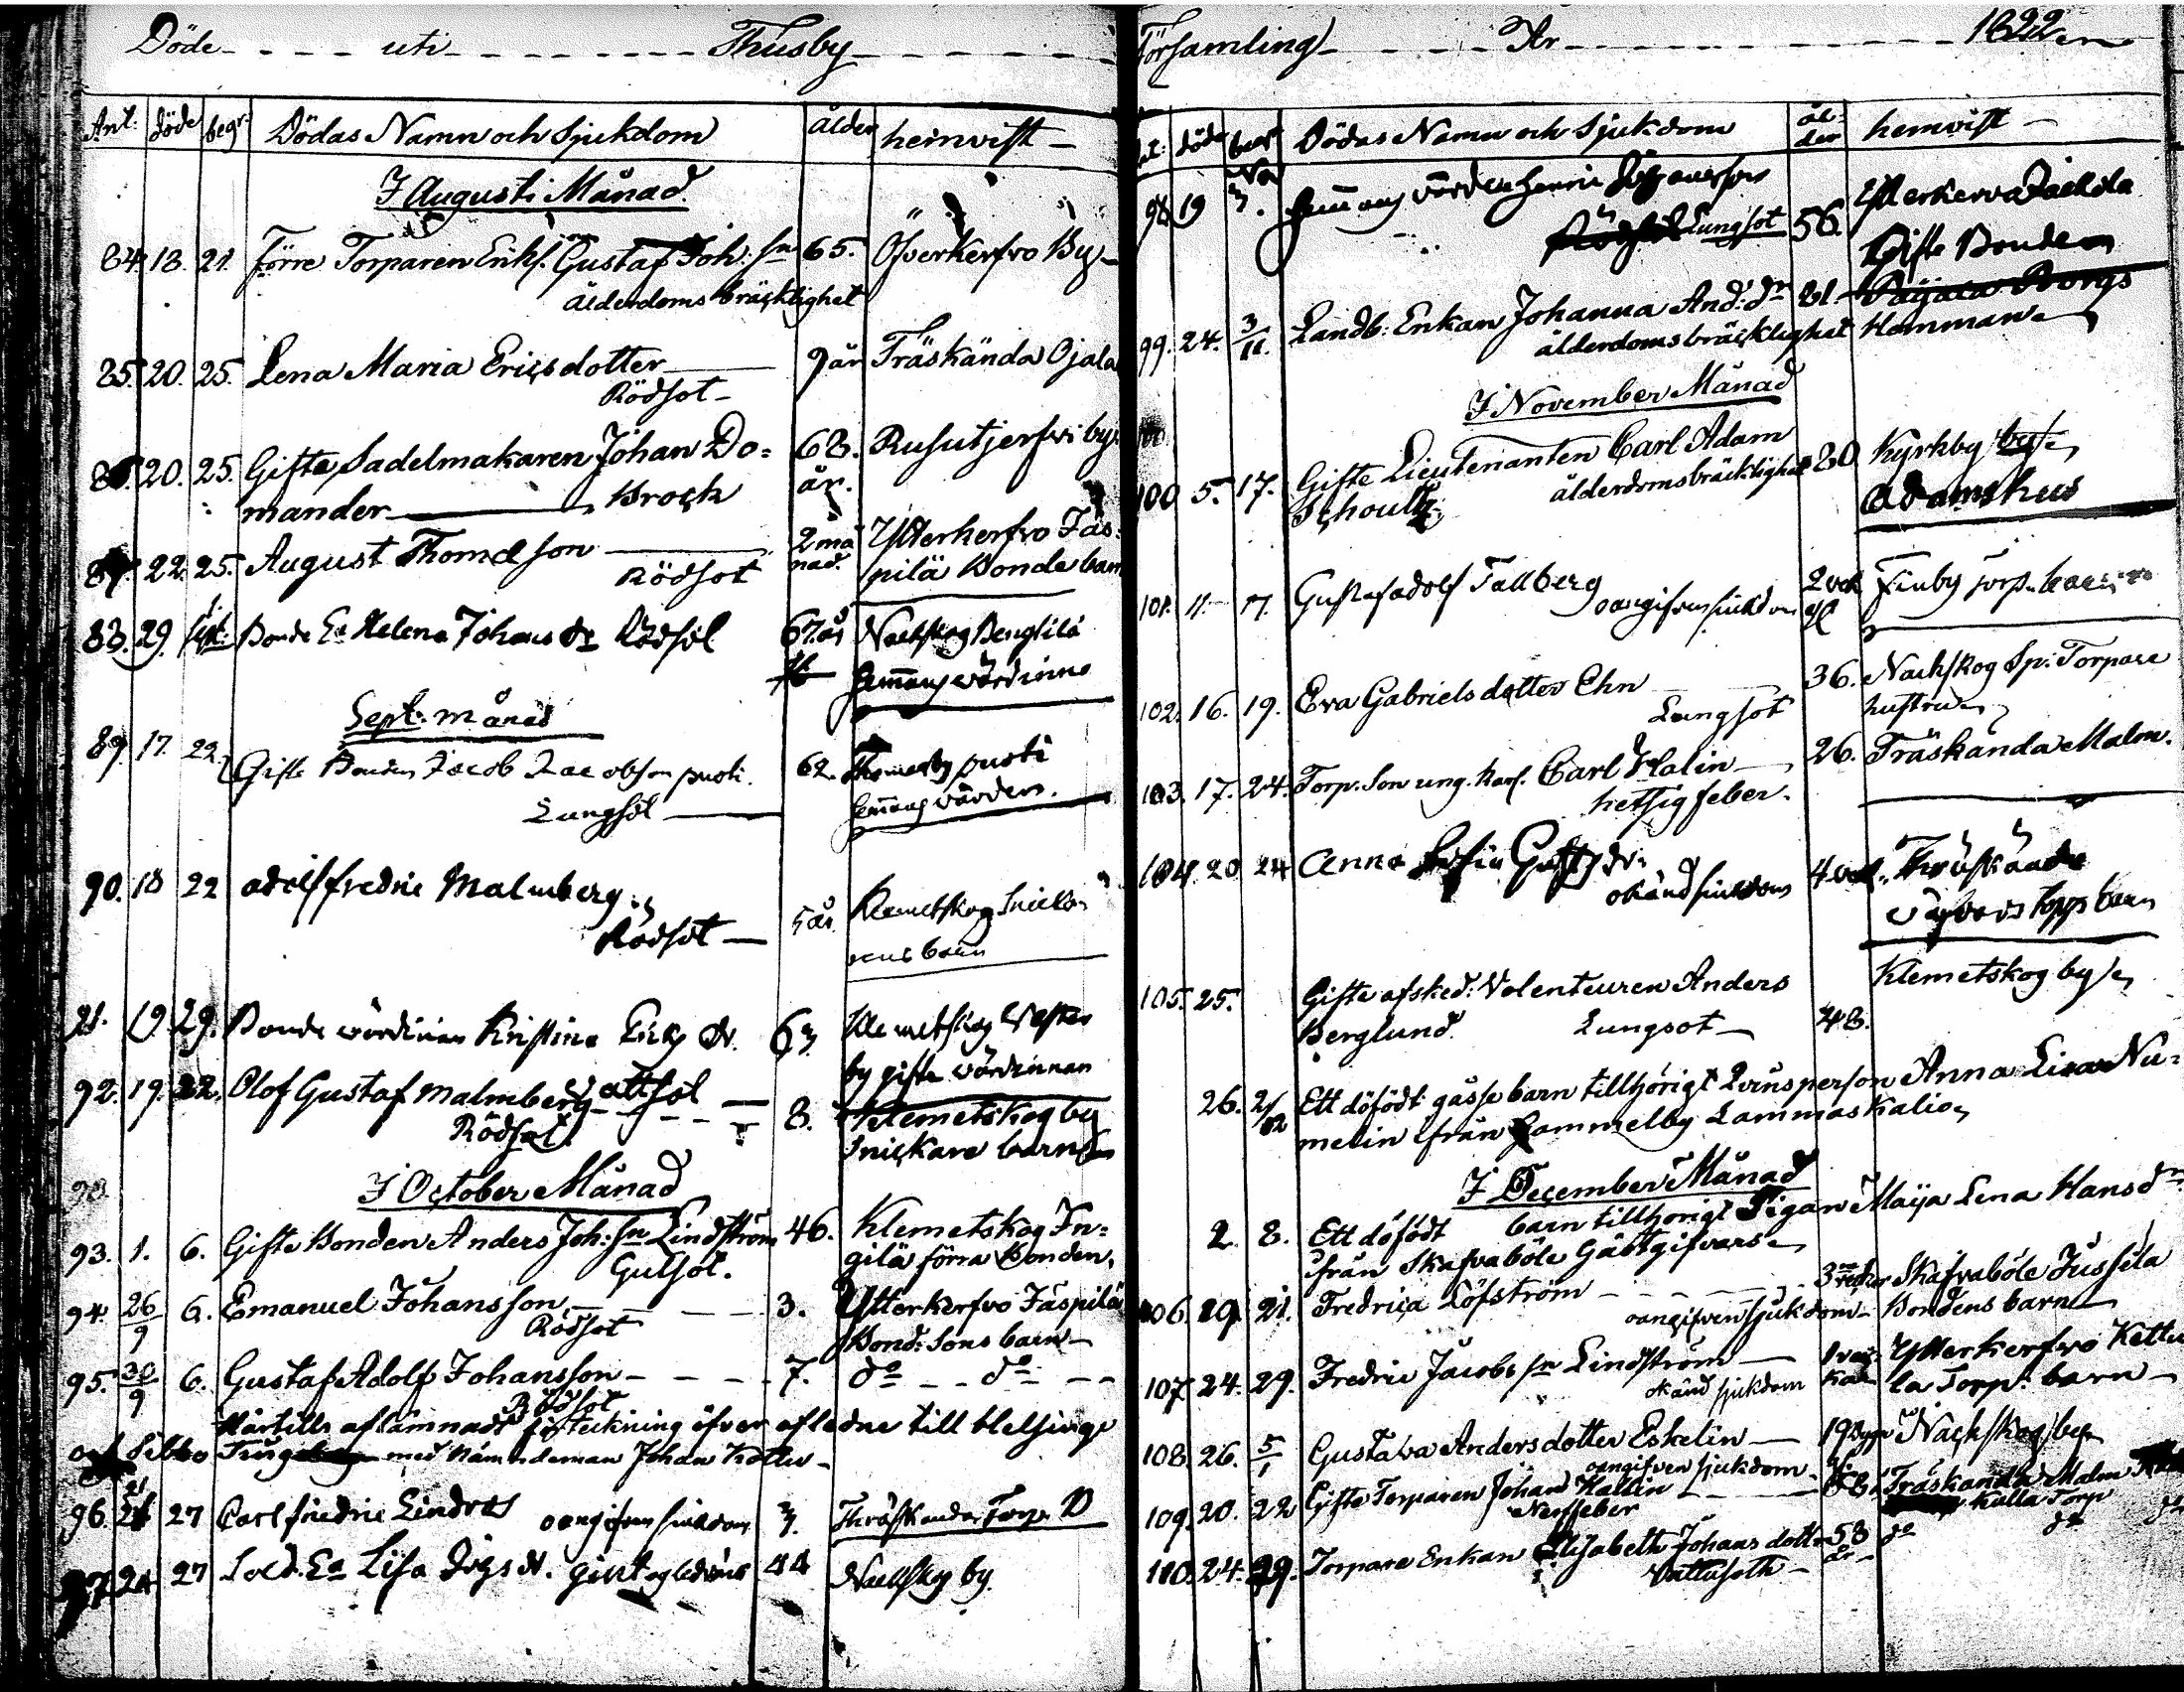 Döde uti Thusby
Ant. döde begr: Dödas Namn och Sjukdom ålder hemvist
I Augusti Månad
84. 18. 21. Förre Torparen Enkl. Gustaf Joh:sn 65. Öfverkerfvo By
ålderdoms bräcklighet
85. 20. 25. Lena Maria Ericsdotter 9 år Träskända Ojala
Rödsot
86. 20. 25. Gifte Sadelmakaren Johan Do= 68. Rusutjerfvi by
mander Brock år.
87. 22. 25. August Thomasson 2 må Ytterkerfvo Jäs=
Rödsot nad. pilä Bonde barn
88. 29. Sept: Bonde Ea Helena Johans dr Rödsot 67 år Nackskog Bengtilä
Hemmans värdinna
Sept. månad
89. 17. 22. Gifte Bonden Jacob Jacobson pusti. 62. pusti
Lungsot Hemmans värden.
90. 18 22 Adolf Fredric Malmberg
Rödsot 5 år. Klemetskog Snicka
rens barn
91. 19. 29. Bonde värdinnan Kristina Erics dr. 63. Klemetskog Wester
by gifte värdinnan
92. 19. 22. Olof Gustaf Malmberg 8. Klemetskog by
Rödsot. Snickare barn
I October Månad
93. 1. 6. Gifte Bonden Anders Joh:sn Lindström 46. Klemetskog In=
Gulsot. gilä förra Bonden,
94. 26/9 6. Emanuel Johansson 3. Ytterkerfvo Jäspilä
Rödsot Bond: Sons barn
95. 30/9 6. Gustaf Adolf Johansson 7. do do
Rödsot
Härtills aflämnadt förteckning öfver afledne till Helsinge
och Sibbo Ting med Nämndeman Johan
96. 21 27 Carl Fredric Lindros oangifven sjukdom 3. Thräskända Torp.
97 24 27 Sold. Ea Lisa 44 Nackskog by.
Församling År 1822
döde begr Dödas Namn och Sjukdom ål-
der hemvist
98 19 3. Hemmans värden Henric Johansson Ytterkerva Jackola
Lungsot 56. Gifte Bonden
99. 24. 3/11. Landb: Enkan Johanna And:dr 81. Borgs
ålderdomsbräcklighet Hemman
I November Månad
100 5. 17. Gifte Lieutenanten Carl Adam 80 Kyrkby by
Schoultz ålderdomsbräcklighet Adamshus
101. 11. 17. Gustaf Adolf Tallberg 2 vek Finby Torp. barn
oangifven sjukdom
102. 16. 19. Eva Gabrielsdotter Ehn 36. Nackskog Sp: Torpare
Lungsot hustru
103. 17. 24. Torp. Son ung. Karl. Carl Malin 26. Träskända Malm.
hetsig feber.
104 20 24 Anna Gustfs dr. 4 vek. Thräskända
okänd sjukdom barn
Klemetskog by
105. 25. Gifte afsked: Volenteuren Anders
Berglund. Lungsot 48.
26. 2/12 Ett döfödt gosse barn tillhörigt Qvinsperson Anna Lisa Nu=
melin från Gammelby Lammaskalio
I December Månad
2. 8. Ett döfödt barn tillhörigt Pigan Maija Lena Hansdr
från Skafvaböle Gästgifvars
106. 19. 21. Fredrica Löfström 3 veckor Skafvaböle Jussila
oangifven sjukdom Bondens barn
107. 24. 29. Fredric Jacobs sn Lindström 1 vec= Ytterkerfvo Kettu
okänd sjukdom ka la Torp: barn
108. 26. 5/1 Gustava Andersdotter Eskelin 19 Nackskog by
oangifven sjukdom
109. 20. 22 Gifte Torparen Johan Hallin 58. Träskända Malm
Nerffeber Kulla Torp
110. 24. 29. Torpare Enkan Elisabeth Johansdott= 58 do do
Vattusoth år